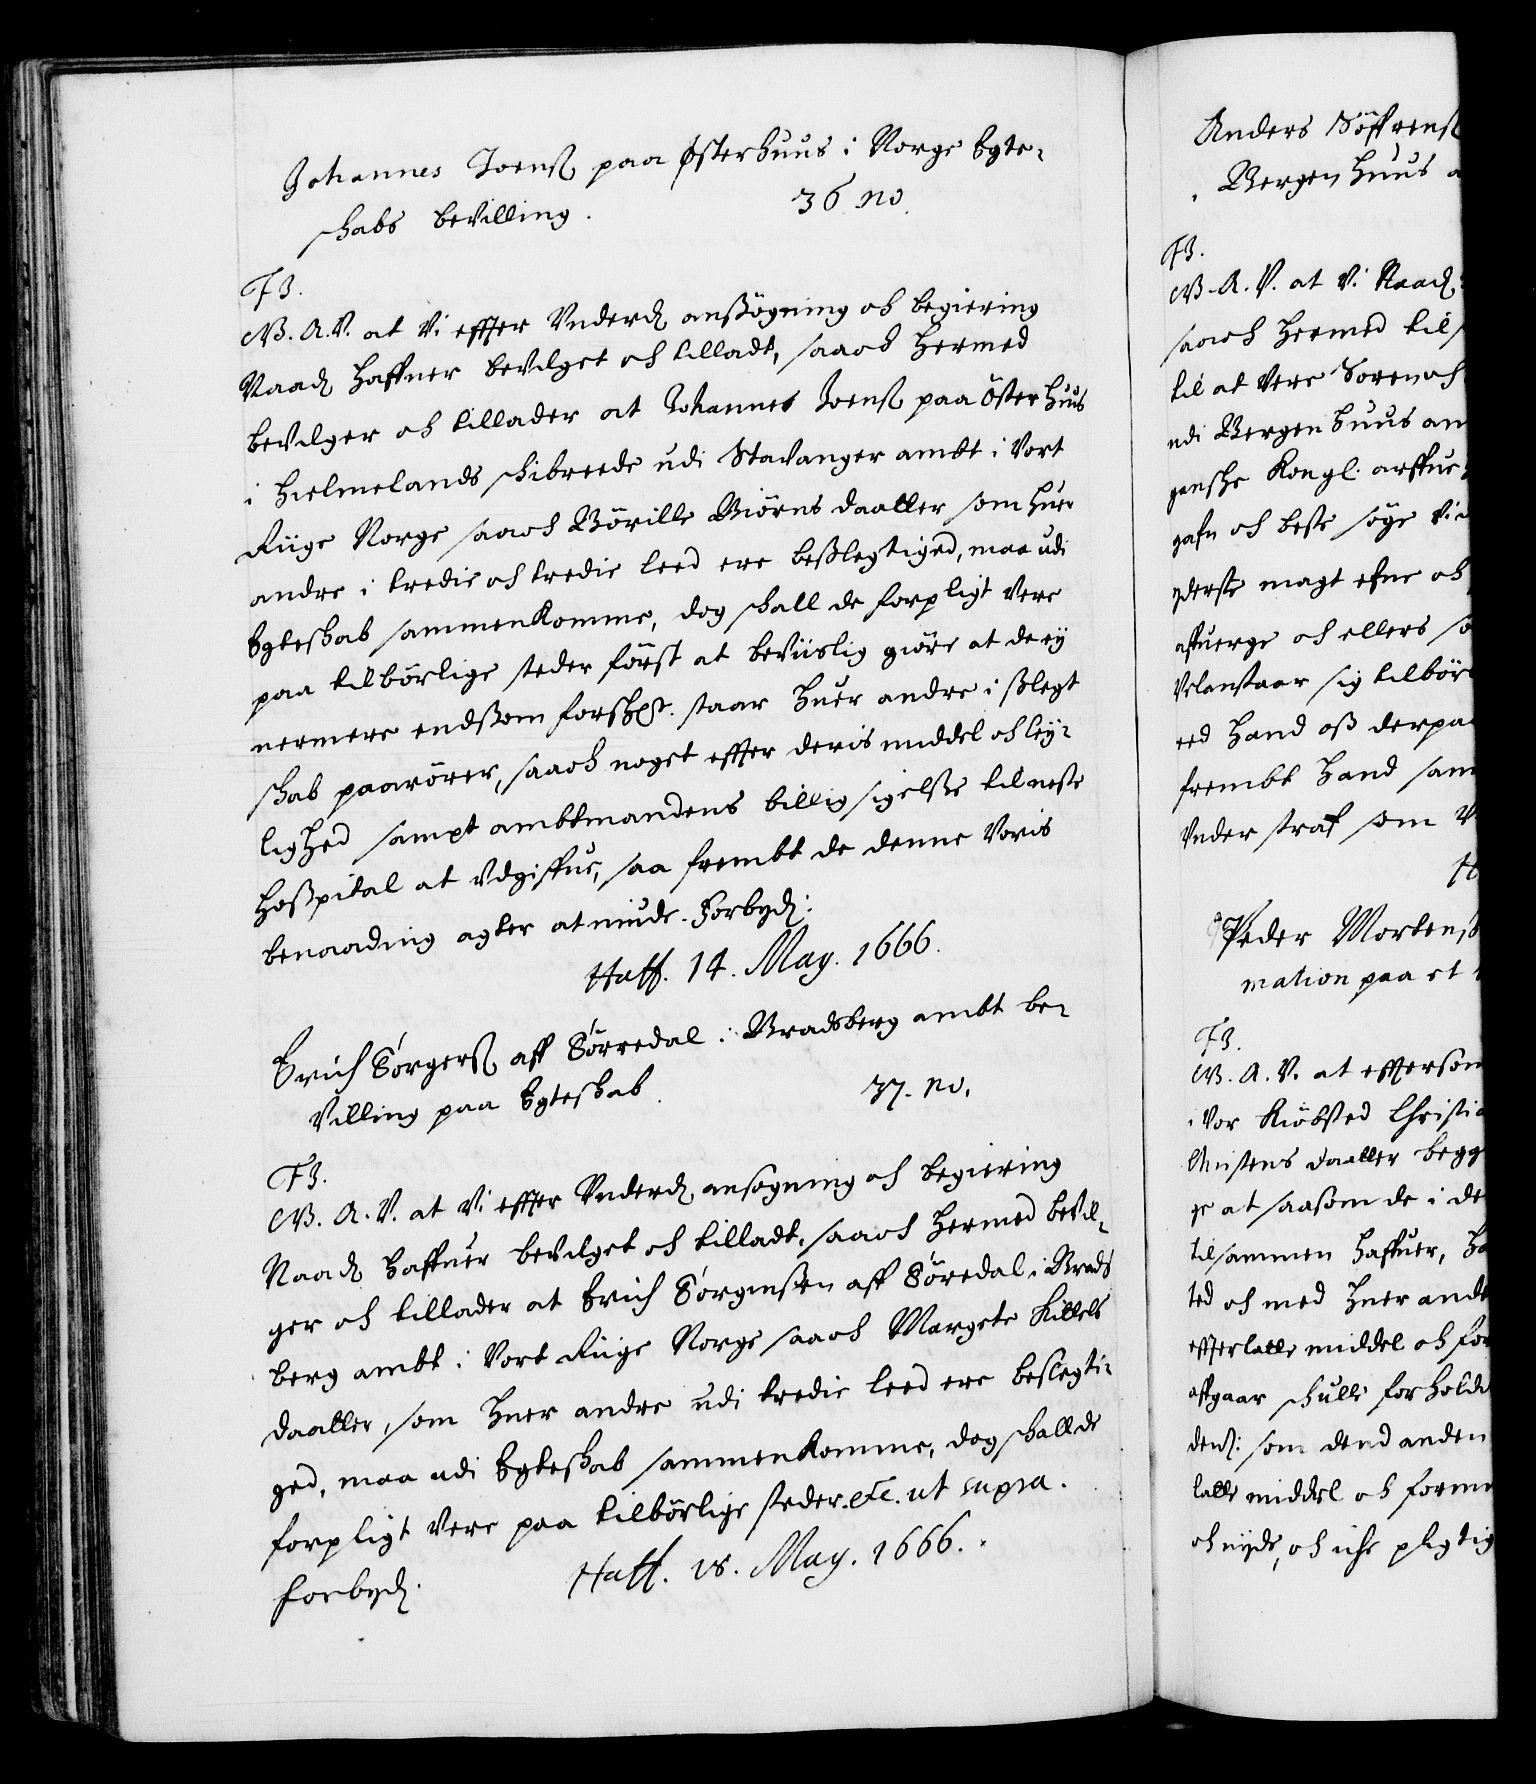 Johannes Joenß paa Østerhuus i Norge Egte-
schabs bevilling. 36 no.
F3.
G. A. V. at Vi effter Underd. anßögning och begiering
Naad. haffuer bevilget och tilladt, saaoch hermed
bevilger och tillader at Johannes Joenß paa Österhuus
i Hielmelands schibreede udi Stavanger ambt i Vort
Riige Norge saaoch Börille Biörns daatter som huer
andre i tredie och tredie leed ere beßlegtiged, maa udi
Egteschab sammenkomme, dog schall de forpligt vere
paa tilbörlige steder först at beviislig giöre at de ey
nermere endßom forschr: staar huer andre i ßlegt
schab paarörer, saaoch noget effter deris middel och ley-
lighed sampt ambtmandens billig sigelße til neste
Hoßpital at udgiffue, saa frembt de denne Voris
benaading agter at niude. Forbyd:
Haff. 14. May. 1666.
Erich Jörgenß aff Sörredal i Bradsberg ambt be-
villing paa Egteschab. 37. no.
F3.
G. A. V. at Vi effter Underd. ansögning och begiering
Naad. haffuer bevilget och tilladt, saaoch hermed bevil-
ger och tillader at Erich Jörgenßen aff Söredal i Brads
berg ambt i Vort Riige Norge saaoch Margete Kittels
daatter, som huer andre udi tredie leed ere beslegti-
ged, maa udi Egteschab sammenkomme, dog schall de
forpligt vere paa tilbörlige steder. etc. ut supra.
Forbyd. Haff. 18. May. 1666.
Anders Söffrenß
Bergenhuus
F3.
G. A. V. at Vi Naad:
saaoch hermed
til at vere Sorensch
udi Bergenhuus
gansche Kongl. arffue
gafn och beste söge
yderste magt efne och
affuerge och ellers
Velanstaar sig
eed hand oß
frembt hand
Under straf som
Peder Mortenß
mation paa et
F3.
G. A. V. at effterson
i Vor Kiöbsted Christia
Christens daatter begge
ge at saasom de i
tilsammen haffuer,
ted och med huer
effterlatte middel och
affgaar schulle forholde
dend: som dend anden
latte middel och
och nyde, och iche pligtig